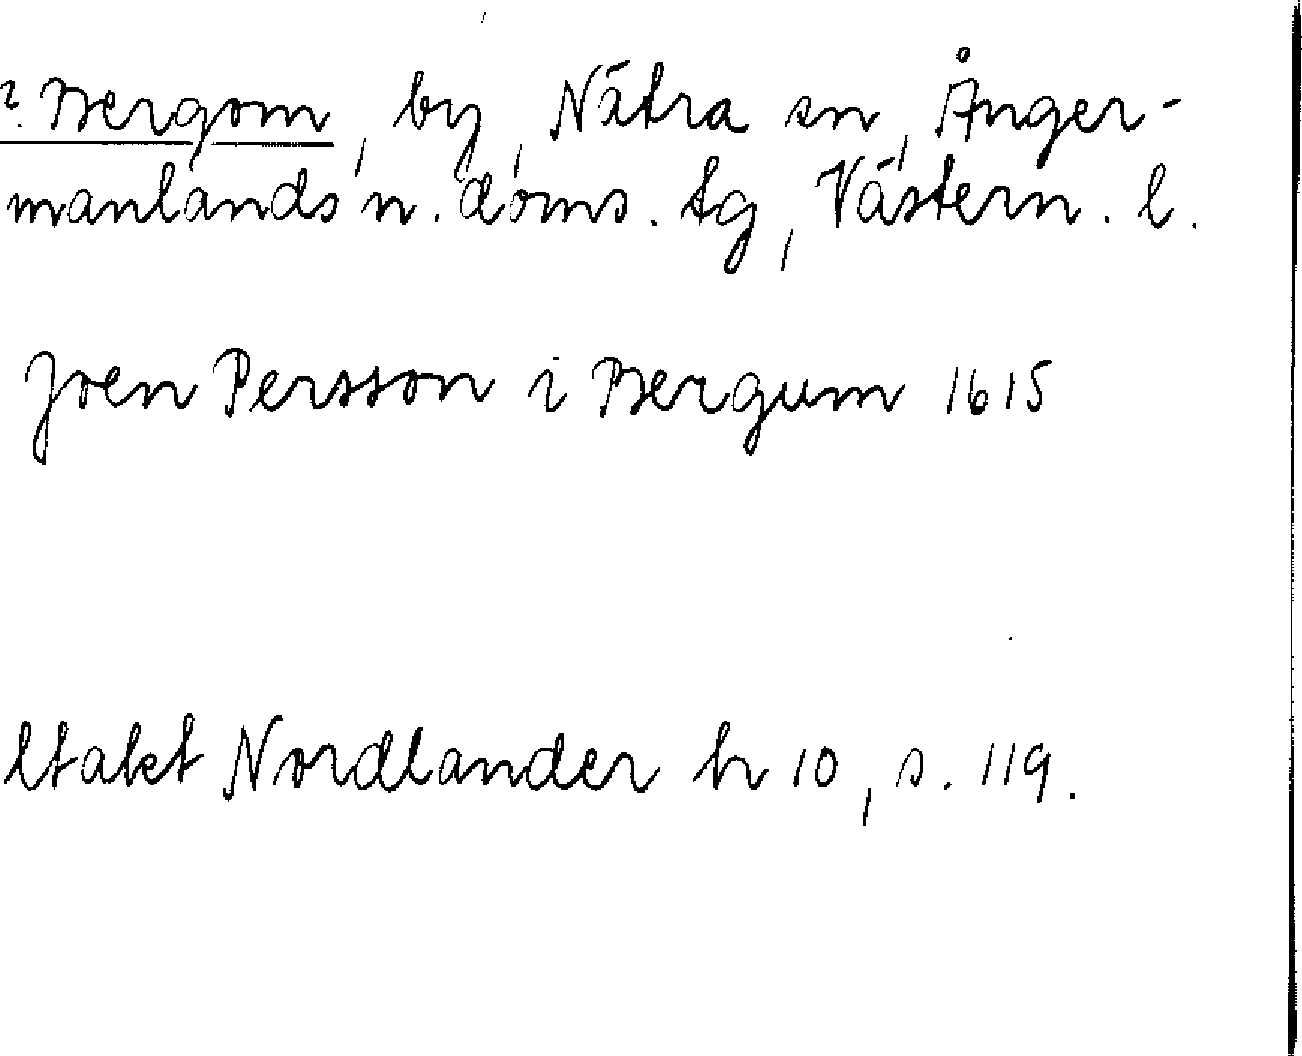 2. Bergom, by, Nätra sn, Ånger-
manlands n. doms. tg, Västern. l.
Joen Persson i Bergum 1615
ltakt Nordlander h 10, s. 119.